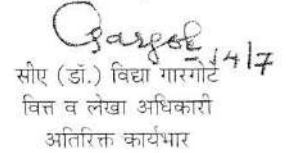 Gargote
14/7
सीए (डॉ.) विद्या गारगोटे
वित्त व लेखा अधिकारी
अतिरिक्त कार्यभार